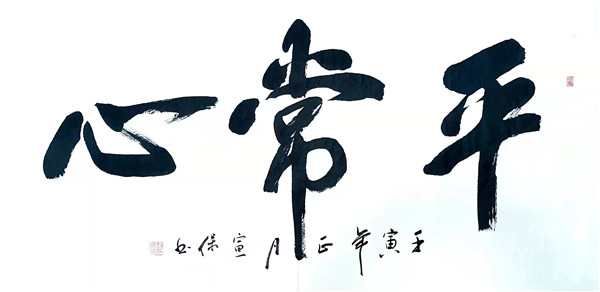 平常心
壬寅年正月宣保书